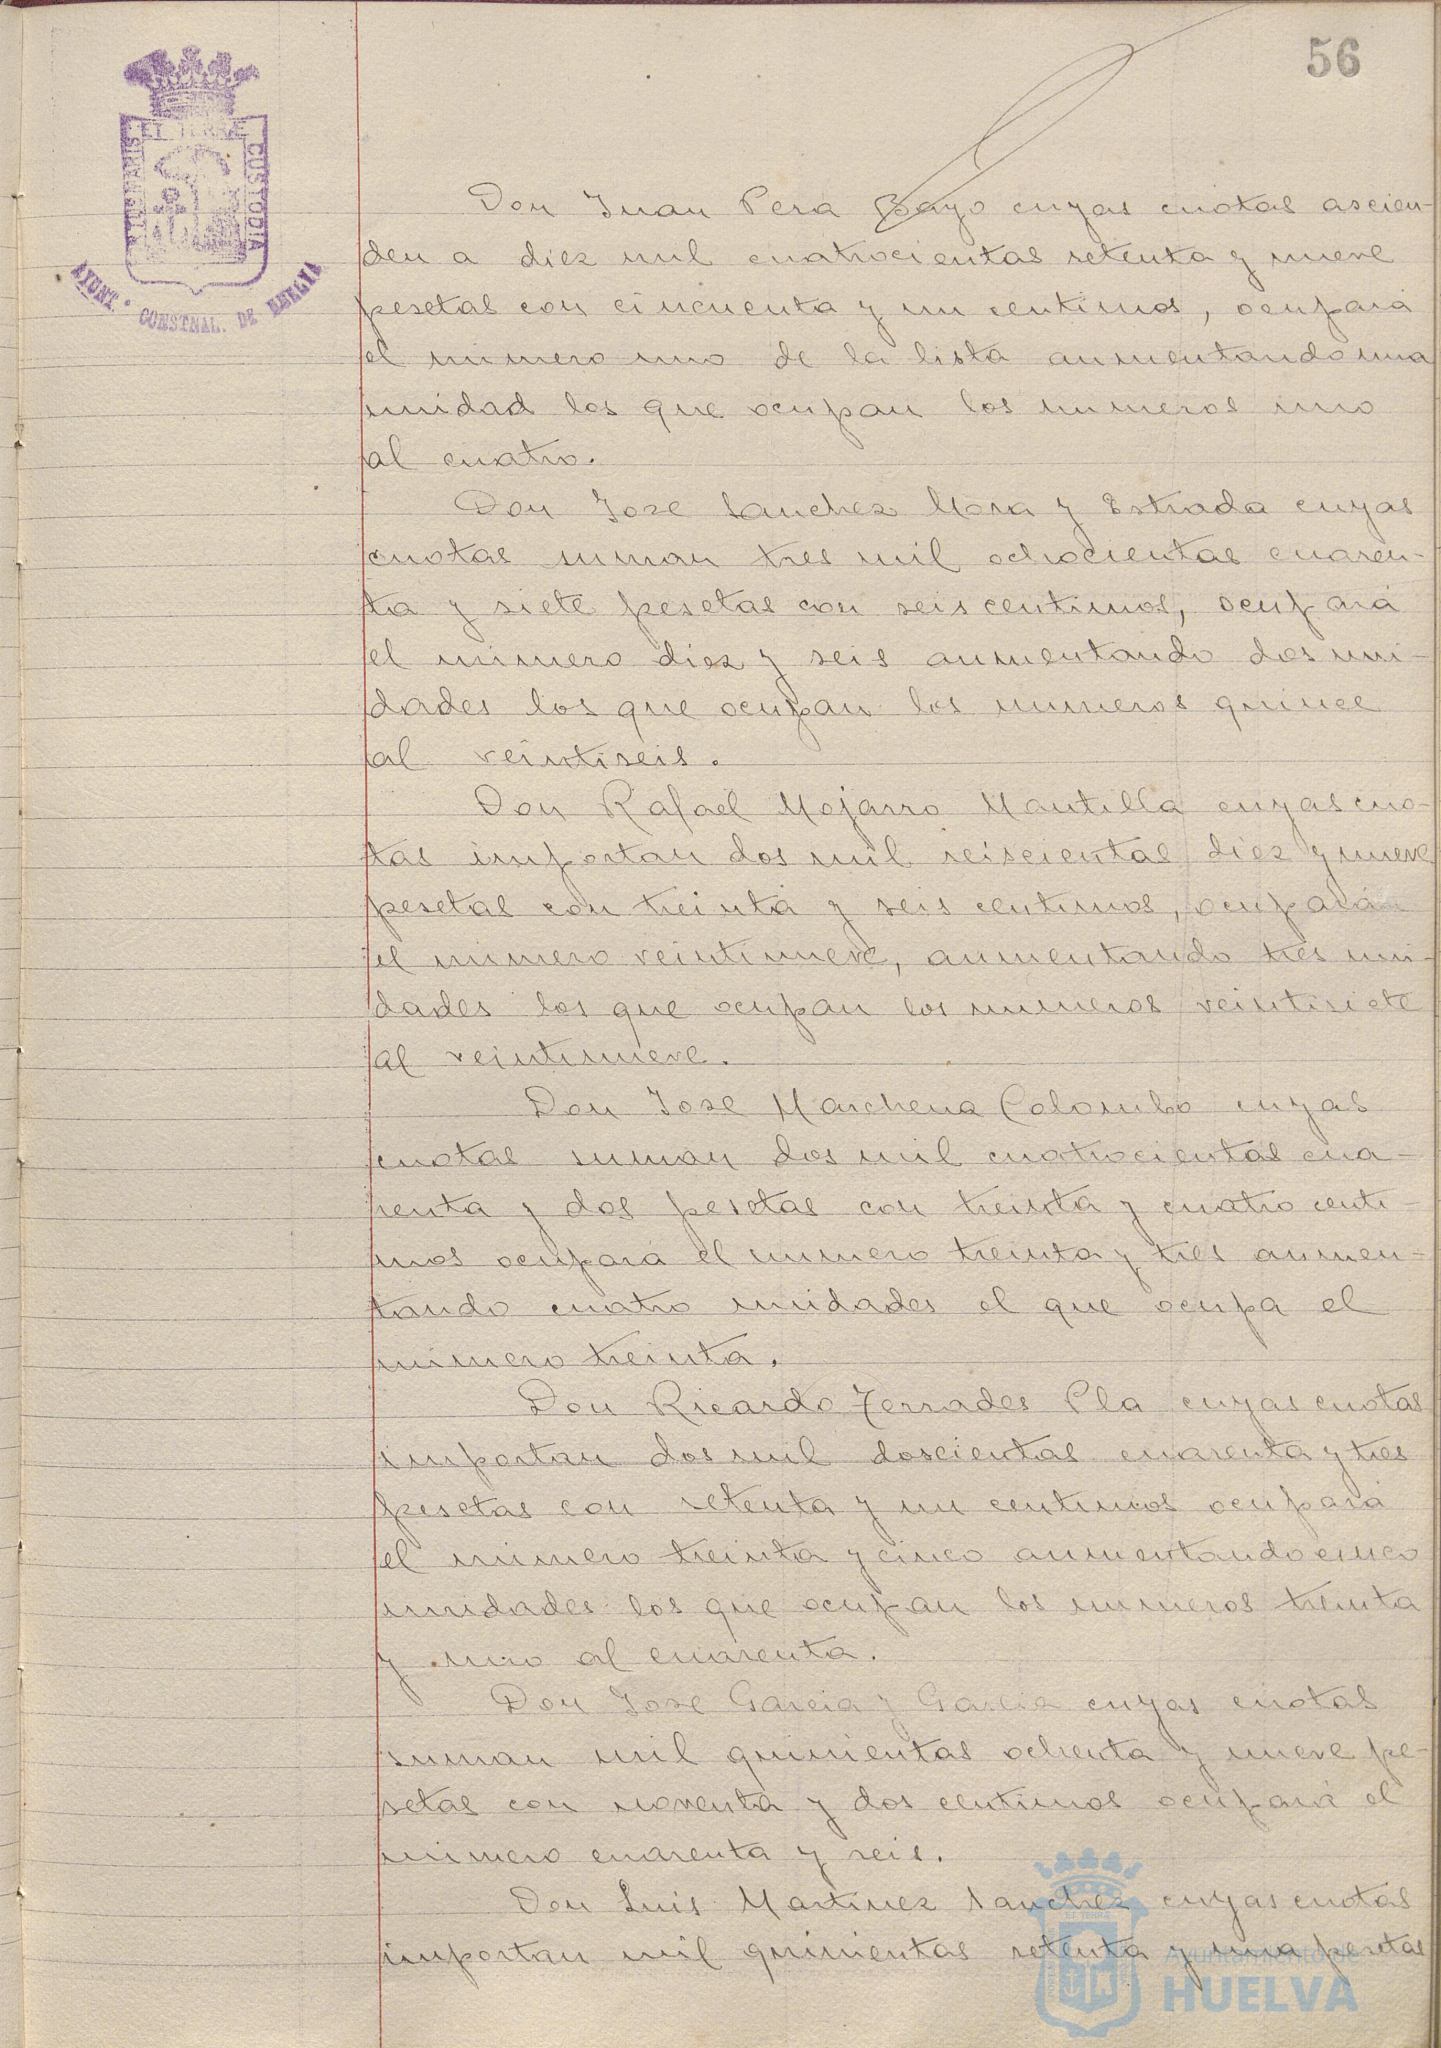 56
PORTUS MARIS ET TERRAE CUSTODIA
AYUNT. CONSTNAL. DE HUELVA
Don Juan Pera Bayo cuyas cuotas ascien-
den a diez mil cuatrocientas setenta y nueve
pesetas con cincuenta y un centimos, ocupará
el numero uno de la lista aumentando una
unidad los que ocupan los numeros uno
al cuatro.
Don Jose Sanchez Mora y Estrada cuyas
cuotas suman tres mil ochocientas cuaren-
ta y siete pesetas con seis centimos, ocupará
el numero diez y seis aumentando dos uni-
dades los que ocupan los numeros quince
al veintiseis.
Don Rafael Mojarro Mantilla cuyas cuo-
tas importan dos mil seiscientas diez y nueve
pesetas con treinta y seis centimos, ocupará
el numero veintinueve, aumentando tres uni-
dades los que ocupan los numeros veintisiete
al veintinueve.
Don Jose Marchena Colombo cuyas
cuotas suman dos mil cuatrocientas cua-
renta y dos pesetas con treinta y cuatro centi-
mos ocupará el numero treinta y tres aumen-
tando cuatro unidades el que ocupa el
numero treinta.
Don Ricardo Terrades Pla cuyas cuotas
importan dos mil doscientas cuarenta y tres
pesetas con setenta y un centimos ocupará
el numero treinta y cinco aumentando cinco
unidades los que ocupan los numeros treinta
y uno al cuarenta.
Don Jose Garcia y Garcia cuyas cuotas
suman mil quinientas ochenta y nueve pe-
setas con noventa y dos centimos ocupará el
numero cuarenta y seis.
Don Luis Martinez Sanchez cuyas cuotas
importan mil quinientas setenta y una pesetas
Ayuntamiento de
HUELVA